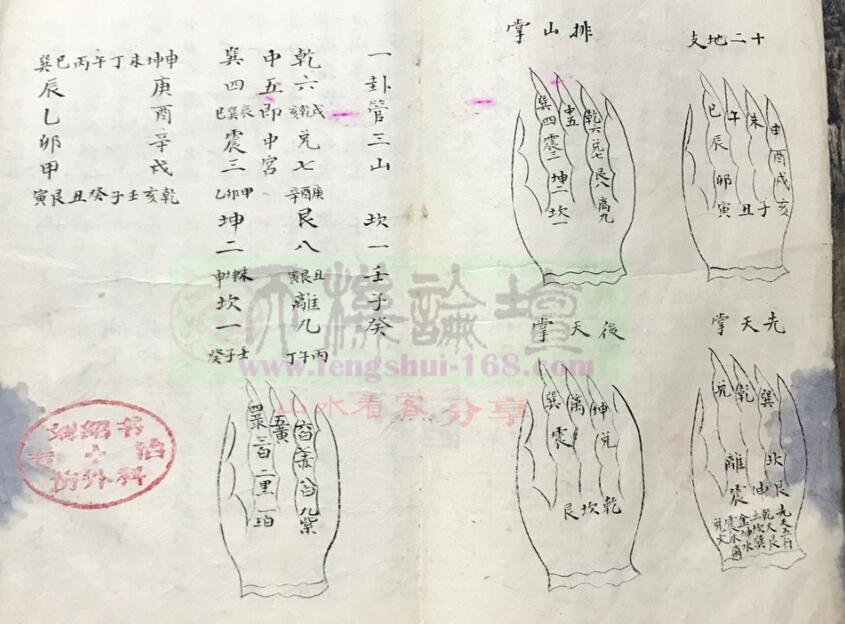 十二地支
巳午未申
辰酉
卯戌
寅丑子亥
排山掌
巽四 中五 乾六
震三 兌七
坤二 艮八
坎一 離九
先天掌
兌乾巽
離坎
震坤艮
後天掌
巽離坤
震兌
艮坎乾
一卦管三山 坎一壬子癸
乾六戌乾亥兌七庚酉辛艮八丑艮寅離九丙午丁
中五即中宮
巽四辰巽巳震三甲卯乙坤二未坤申坎一壬子癸
巽巳丙午丁未坤申
辰庚
乙酉
卯辛
甲戌
寅艮丑癸子壬亥乾
五黃
二黑
九紫
天機論壇
www.fengshui-168.com
山水看客分享
外科